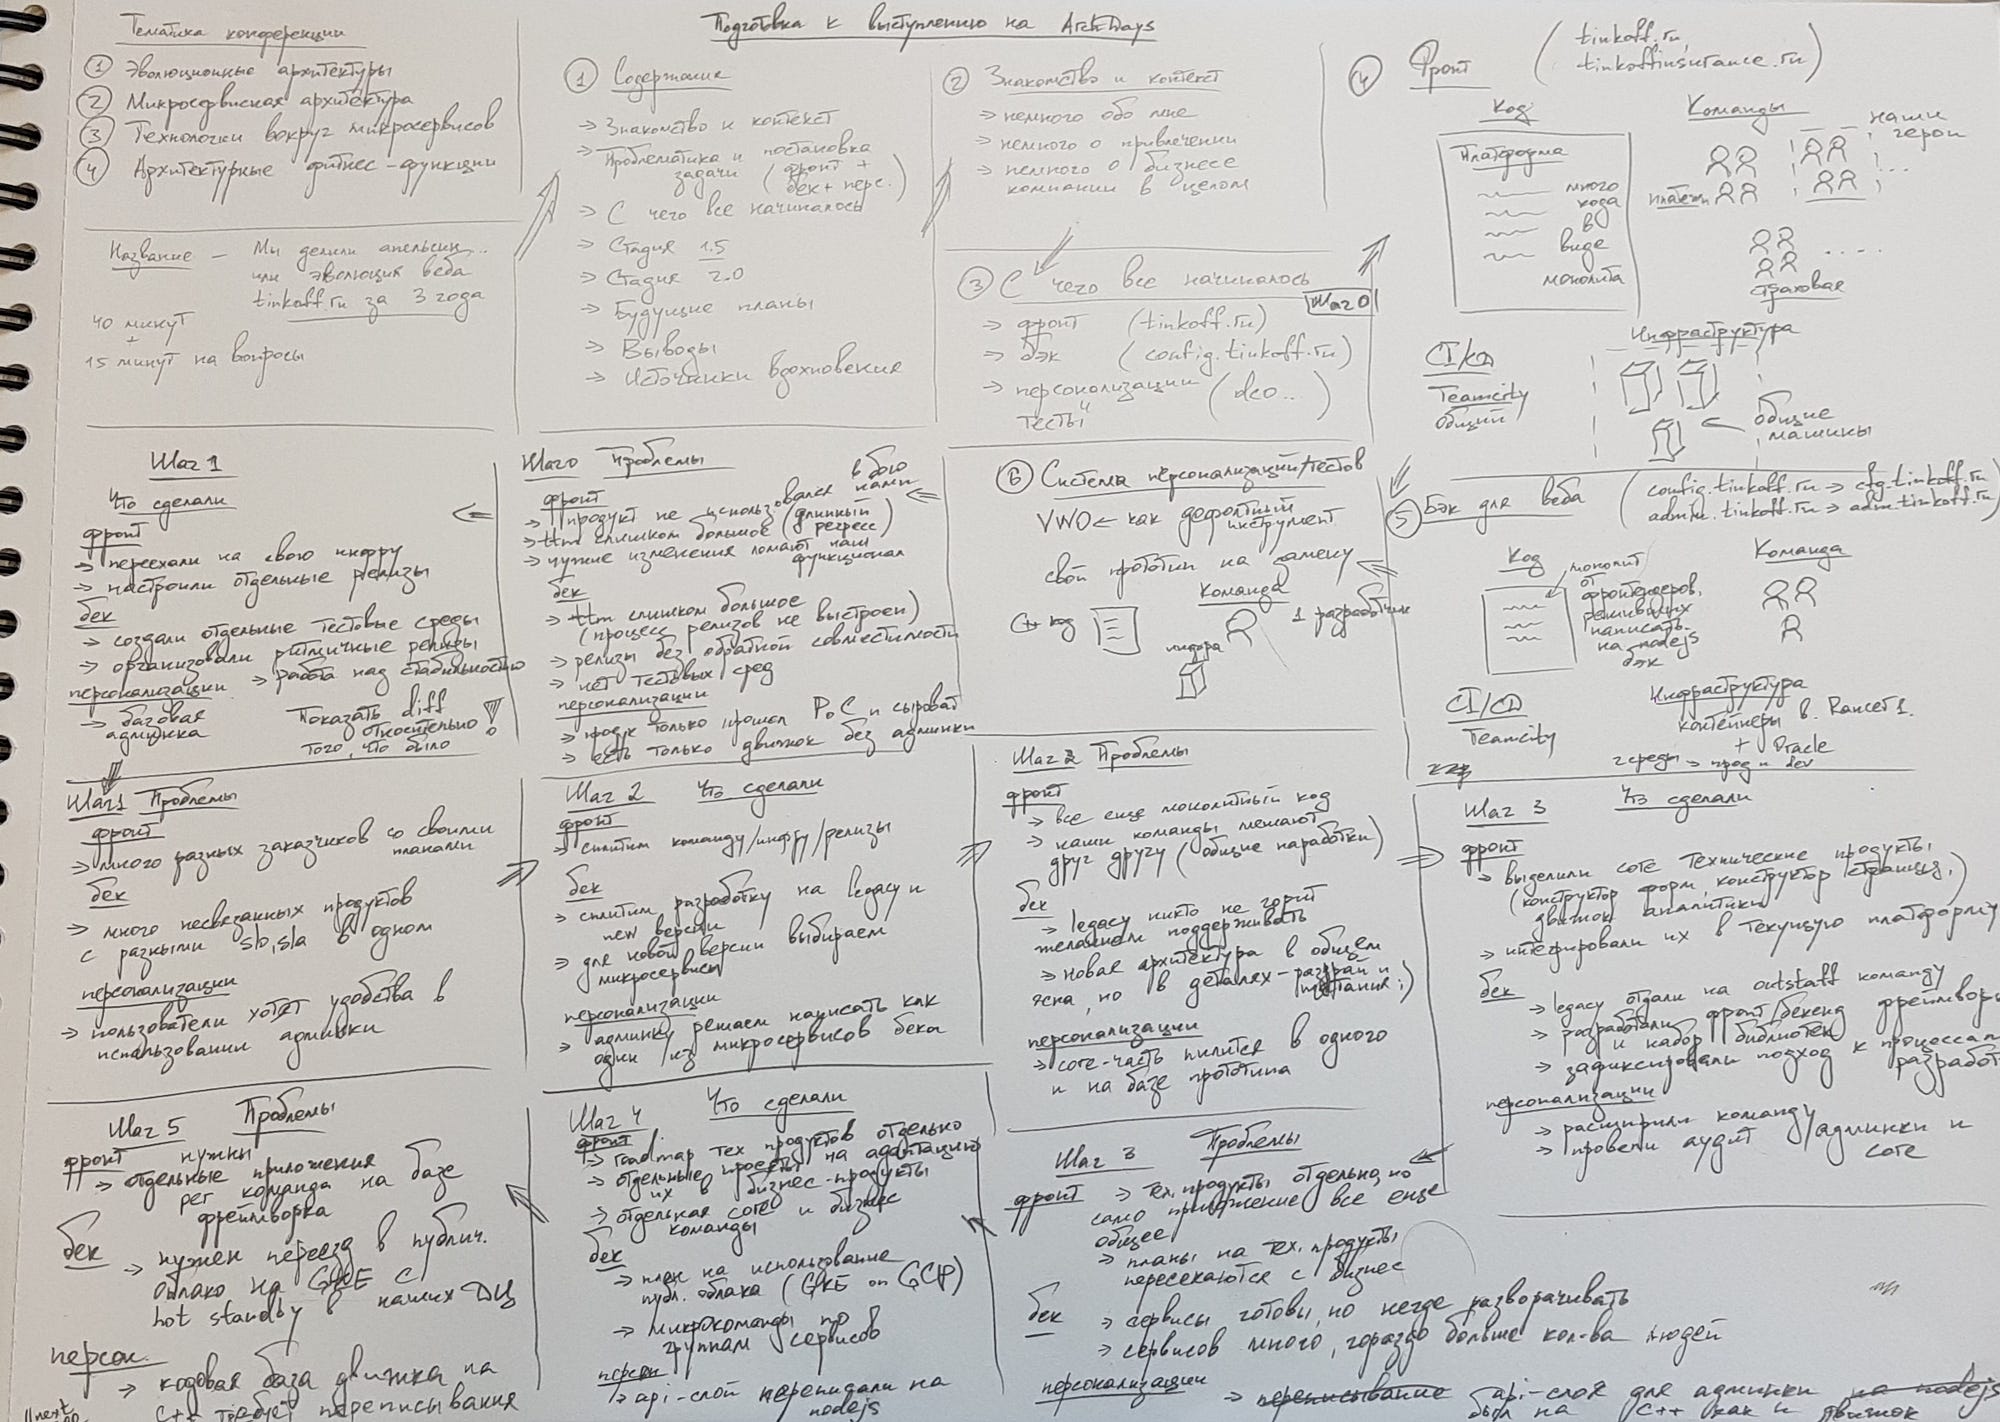 Подготовка к выступлению на ArchDays
Тематика конференции
① Эволюционные архитектуры
② Микросервисная архитектура
③ Технологии вокруг микросервисов
④ Архитектурные фитнес-функции
Название — Мы делили апельсин...
или эволюция веба
tinkoff.ru за 3 года
40 минут
+
15 минут на вопросы
① Содержание
→ Знакомство и контекст
→ Проблематика и постановка
задачи (фронт +
бек + перс.)
→ С чего все начиналось
→ Стадия 1.5
→ Стадия 2.0
→ Будущие планы
→ Выводы
→ Источники вдохновения
② Знакомство и контекст
→ немного обо мне
→ немного о привлечении
→ немного о бизнесе
компании в целом
③ С чего все начиналось
Шаг 0
→ фронт (tinkoff.ru)
→ бэк (config.tinkoff.ru)
→ персонализации (dco...)
и тесты
④ Фронт (tinkoff.ru,
tinkoffinsurance.ru)
Код
Платформа
много
кода
в
виде
монолита
Команды
наши
герои
платежи
страховая
CI/CD
Teamcity
общий
Инфраструктура
общие
машины
⑤ Бэк для веба (config.tinkoff.ru → cfg.tinkoff.ru
admin.tinkoff.ru → adm.tinkoff.ru)
Код
монолит
от
фронтендеров,
решивших
написать
на nodejs
бэк
Команда
CI/CD
Teamcity
Инфраструктура
контейнеры в Rancer 1.
+ Oracle
2 среды → прод и dev
⑥ Система персонализаций/тестов
VWO ← как дефолтный
инструмент
свой прототип на замену
C++ код
Команда
1 разработчик
инфра
Шаг 0 Проблемы
фронт
→ продукт не использовался нами в бою
→ ttm слишком большое (длинный
регресс)
→ чужие изменения ломают наш
функционал
бек
→ ttm слишком большое
(процесс релизов не выстроен)
→ релизы без обратной совместимости
→ нет тестовых сред
персонализации
→ продукт только прошел PoC и сыроват
→ есть только движок без админки
Шаг 1
Что сделали
фронт
→ переехали на свою инфру
→ настроили отдельные релизы
бек
→ создали отдельные тестовые среды
→ организовали ритмичные релизы
→ работа над стабильностью
персонализации
→ базовая
админка
Показать diff
относительно
того, что было !
Шаг 1 Проблемы
фронт
→ много разных заказчиков со своими
планами
бек
→ много несвязанных продуктов
с разными slo, sla в одном
персонализации
→ пользователи хотят удобства в
использовании админки
Шаг 2 Что сделали
фронт
→ сплитим команду/инфру/релизы
бек
→ сплитим разработку на legacy и
new версии
→ для новой версии выбираем
микросервисы
персонализации
→ админку решаем написать как
один из микросервисов бека
Шаг 2 Проблемы
фронт
→ все еще монолитный код
→ наши команды мешают
друг другу (общие наработки)
бек
→ legacy никто не горит
желанием поддерживать
→ новая архитектура в общем
ясна, но в деталях - разброд и
шатания :)
персонализации
→ core-часть пилится в одного
и на базе прототипа
Шаг 3 Что сделали
фронт
→ выделили core технические продукты
(конструктор форм, конструктор страниц,
движок аналитики)
→ интегрировали их в текущую платформу
бек
→ legacy отдали на outstaff команду
→ разработали фронт/бекенд фреймворк
и набор библиотек
→ зафиксировали подход к процессам
разработки
персонализации
→ расширили команду
→ провели аудит админки и
core
Шаг 3 Проблемы
фронт → тех. продукты отдельно, но
само приложение все еще
общее
→ планы на тех. продукты
пересекаются с бизнес
бек → сервисы готовы, но негде разворачивать
→ сервисов много, гораздо больше кол-ва людей
персонализации → переписывание api-слоя для админки на nodejs
был на C++ как и движок
Шаг 4 Что сделали
фронт
→ roadmap тех продуктов отдельно
→ отдельные проекты на адаптацию
их в бизнес-продукты
→ отдельная core и бизнес
команды
бек
→ план на использование
публ. облака (GKE on GCP)
→ микрокоманды по
группам сервисов
персон
→ api-слой переписали на
nodejs
Шаг 5 Проблемы
фронт нужны
→ отдельные приложения
per команда на базе
фреймворка
бек → нужен переезд в публич.
облако на GKE с
hot standby в наших ДЦ
персон.
→ кодовая база движка на
C++ требует переписывания
//next